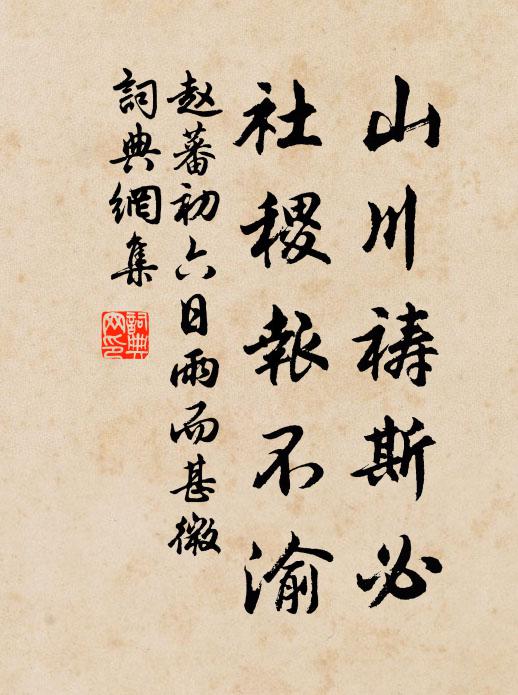 山川祷斯必
社稷報不渝
趙蕃初六日雨而甚微
詞典網集
詞典網印